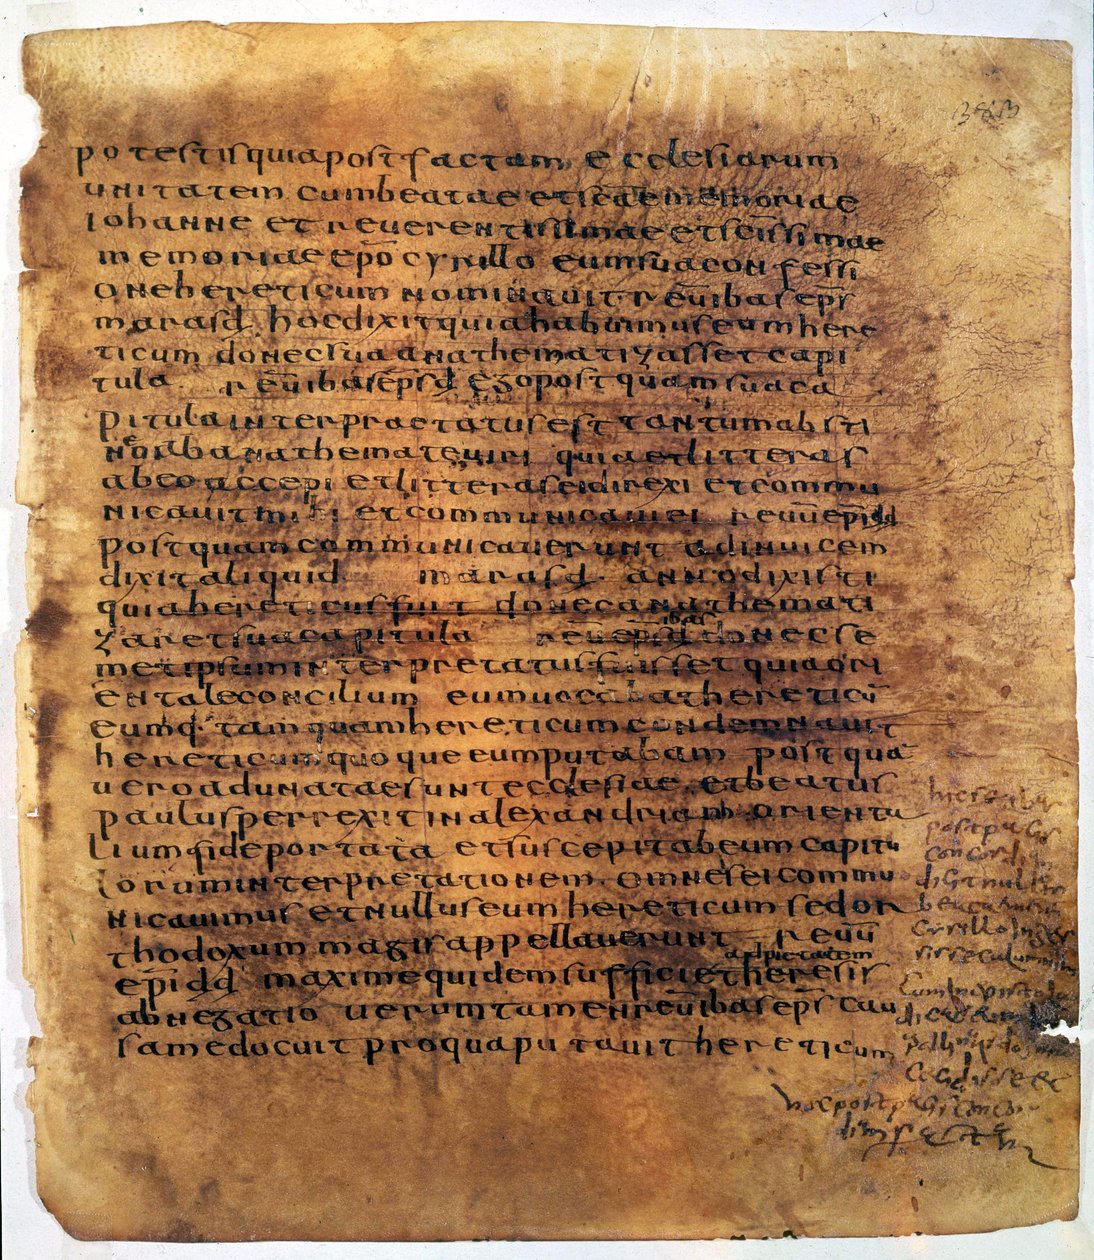 potestisquiapostfactam ecclesiarum
unitatem cumbeatae etscae memoriae
Iohanne et reuerentissimae etscissimae
memoriae epo cyrillo eumsuaconfessi
onehereticum nominauit· reuibas eps
marasd hocdixitquiahabuimuseumhere
ticum donecsua anathematizasset capi
tula reuibasepsd egopostquamsuaca
pitulainterpraetatusest tantumabsti
abeo accepi etlitteraseidirexi etcommu
nicauitmihi etcommunicauiei reuuepidd
postquamcommunicauerunt adinuicem
dixitaliquid marasd· annodixisti
quiahereticusfuit donecanathemati
zaretsuacapitula reuepsd donecse
ibas
metipsuminterpretatusfuisset quiaori
entaleconcilium eumuocabathereticū
eumq· tamquamhereticumcondemnauit
hereticumquoqueeumputabam postquā
ueroadunataesuntecclesiae etbeatus
paulusperrexitinalexandriam orienta
liumfideportata etsuscepitabeumcapitu
loruminterpretationem omneseicommu
nicauimus etnulluseumhereticumsedor
thodoxummagisappellauerunt reuu
epidd maximequidemsufficietheresis
adpietatem
abnegatio uerumtamenreuibaseps cau
samedocuit proquaputauit hereticum